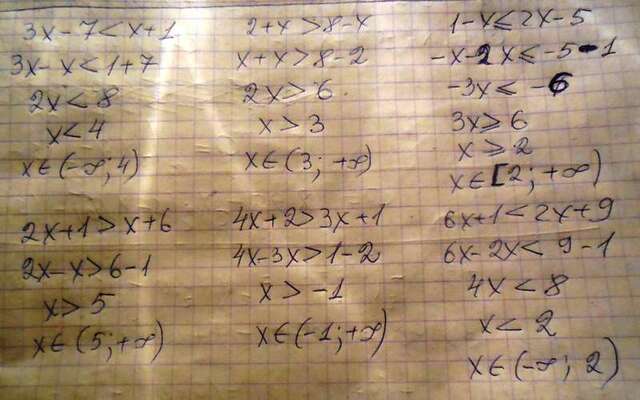 3x-7<x+1
3x-x<1+7
2x<8
x<4
x∈(-∞;4)
2+x>8-x
x+x>8-2
2x>6
x>3
x∈(3;+∞)
1-x≤2x-5
-x-2x≤-5-1
-3x≤-6
3x≥6
x≥2
x∈[2;+∞)
2x+1>x+6
2x-x>6-1
x>5
x∈(5;+∞)
4x+2>3x+1
4x-3x>1-2
x>-1
x∈(-1;+∞)
6x+1<2x+9
6x-2x<9-1
4x<8
x<2
x∈(-∞;2)